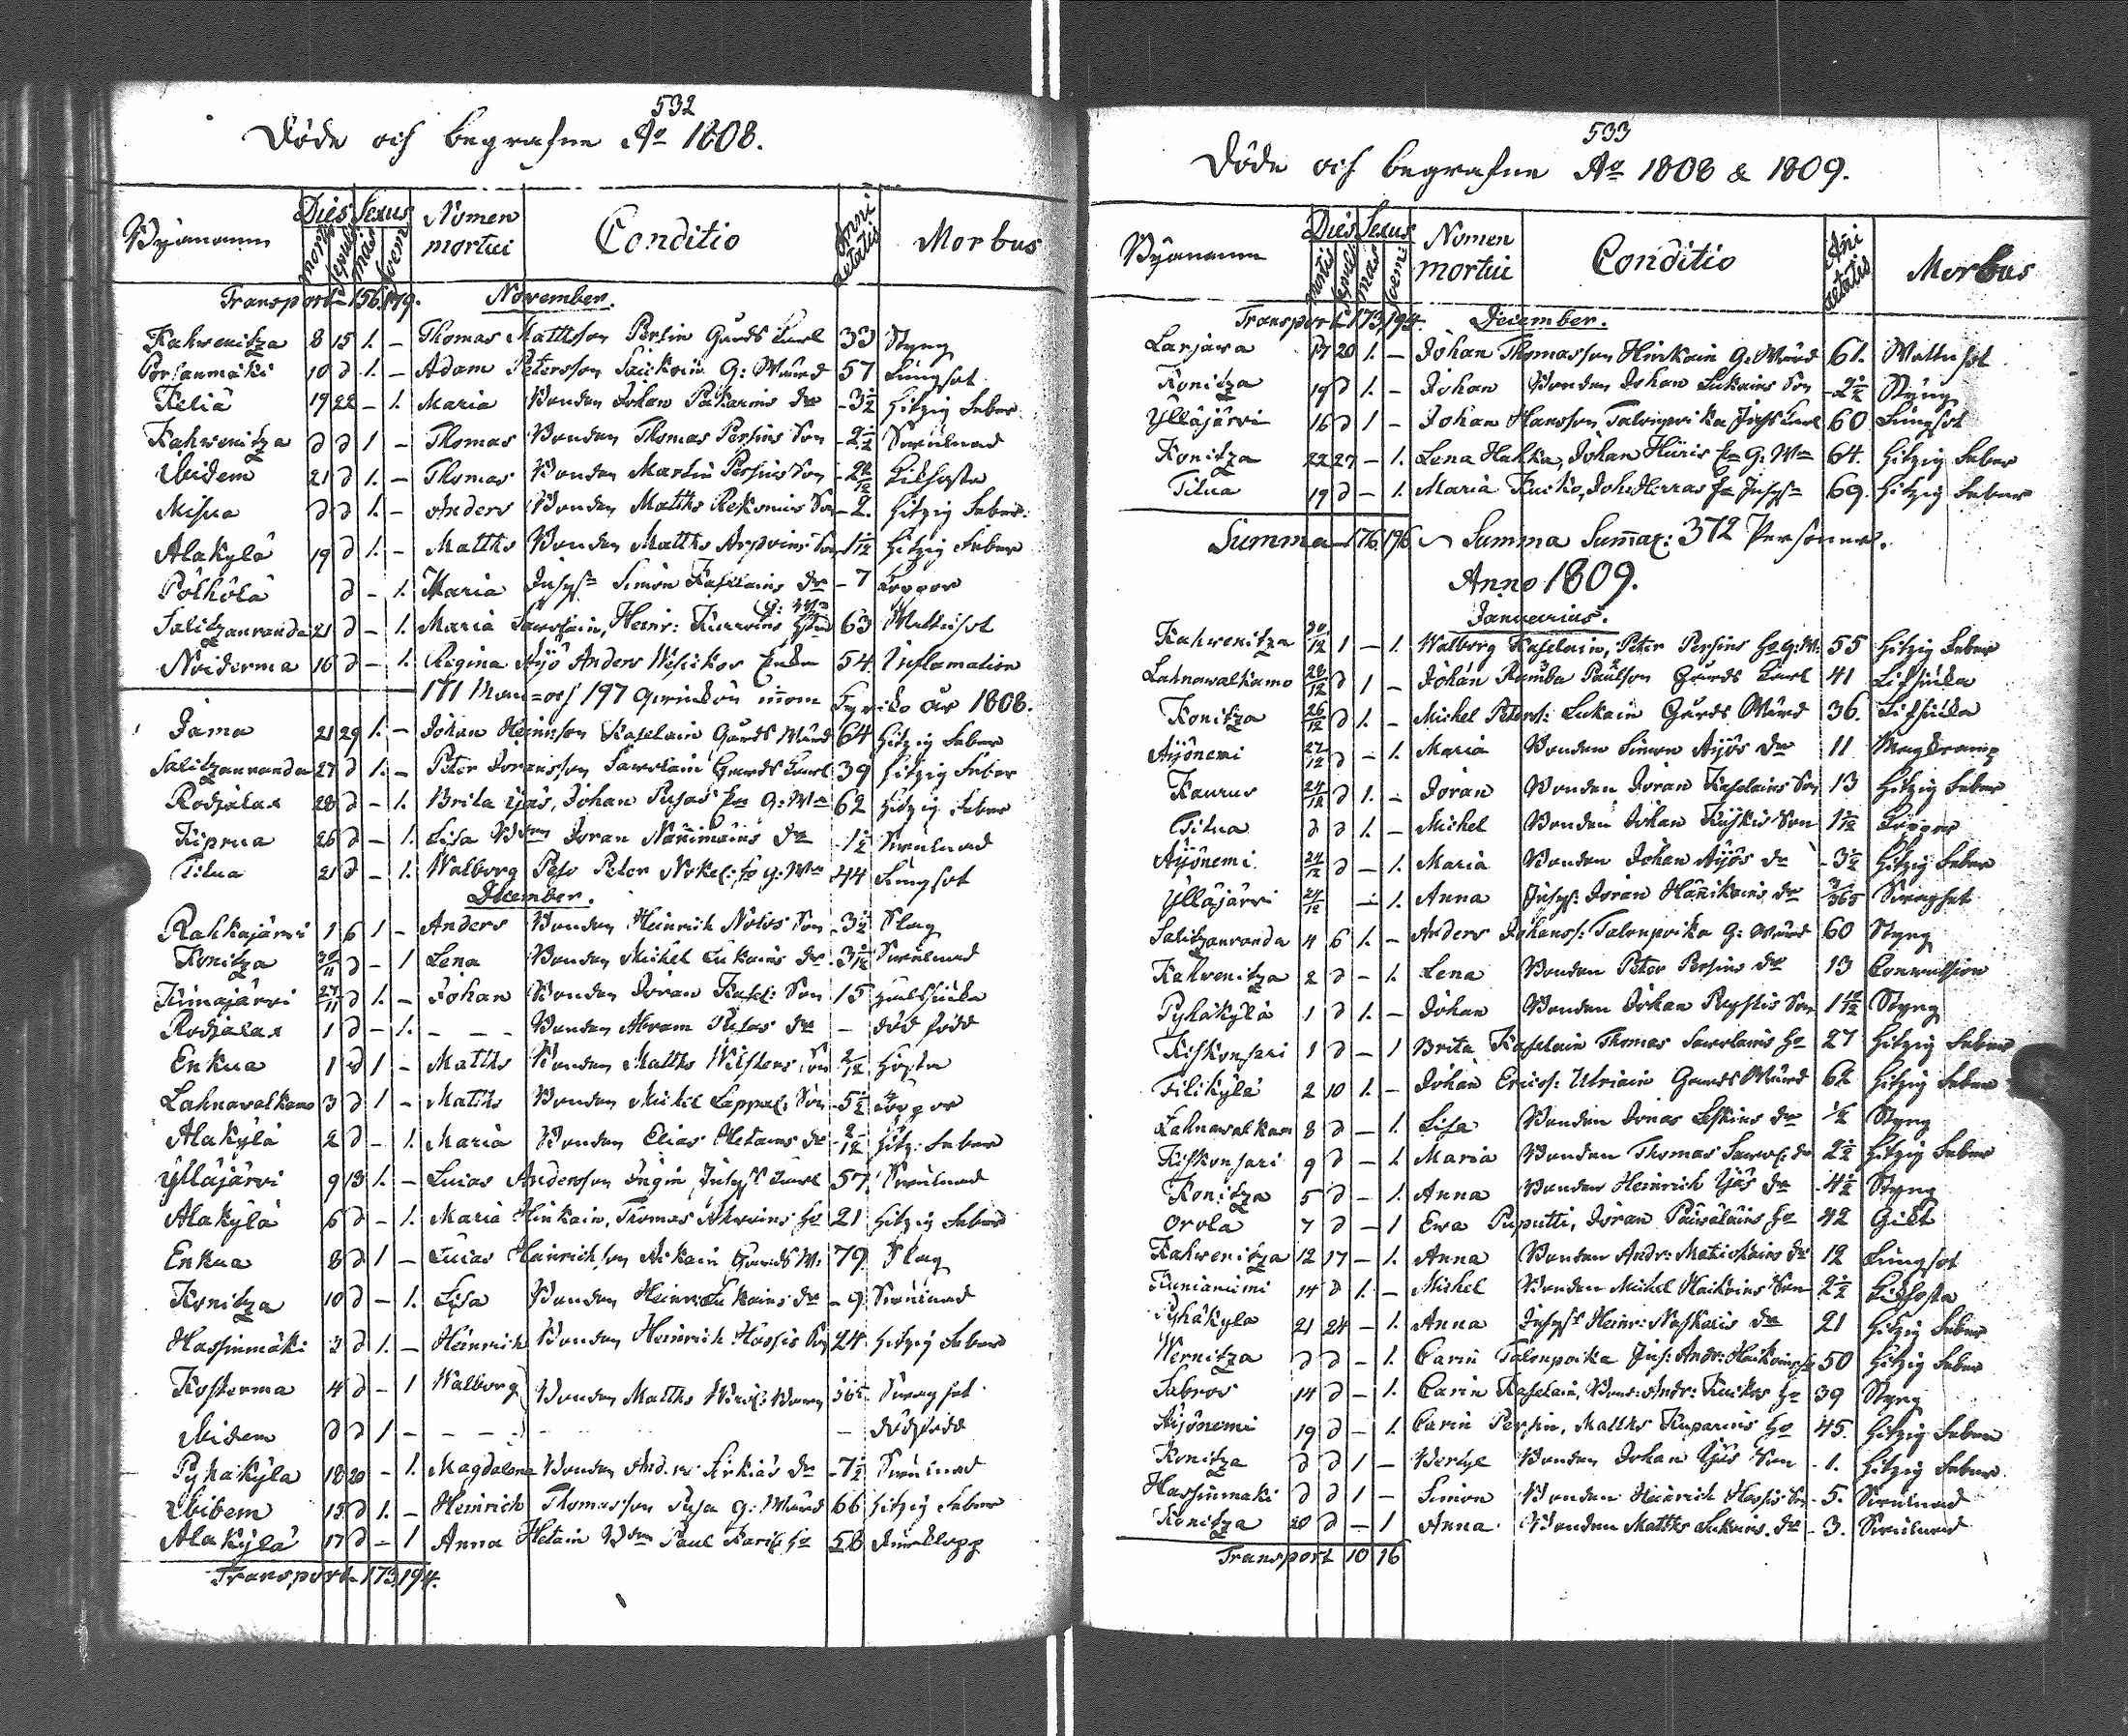 532
Döde och begrafne Aº 1808.
Bÿanamn Dies Sexus Nomen mortui Conditio Anni aetatis Morbus
mortis sepult mas foem
Transport 156. 179. November.
Kahwenitza 8 15 1. – Thomas Matthsson Persin Gårds Karl 33 Styng
Porsanmäki 10 d 1. – Adam Petersson G: Wärd 57 Lungsot
Telia 19 22 – 1. Maria Bonden Johan Pakarins Dr -3 1/2 Hitzig feber
Kahwenitza d d 1 – Thomas Bonden Thomas Persins Son Swulnad
Uidem 21 d 1. – Thomas Bonden Martin Persins Son Kikhosta
Misua d d 1. – Anders Bonden Matths Rekonius Son – 2. Hitzig feber.
Alakylä 19 d 1. – Matths Bonden Matths Son Hitzig feber
Pölhölä d – 1. Maria Inhys Simon Kaselains Dr – 7 Koppor
Salitzanranda 21 d – 1. Maria Sawolain, Heinr: 63 Wattusot
Noiderma 16 d – 1. Regina Äÿö Anders Enka 54. Inflamation
171 Man- och 197 Qwinkön innom Kyrko år 1808.
Jama 21 29 1. – Johan Heinrsson Kaselain Gårds Wärd 64 Hitzig feber
Salitzanranda 27 d 1. – Peter Joransson Sawolain Gårds Karl 39 Hitzig feber
Rodjalax 28 d – 1. Brita Ijäs, Johan Pusas G: Wn 62 Hitzig feber
Kiprua 26 d – 1. Lisa Bdn Joran Nänimäins Dr -1 1/2 Swulnad
Titua 21 d – 1. Walborg Peter G: Wn 44 Lungsot
December.
Rahkajärwi 1 6 1 – Anders Bonden Heinrich Son -3 1/2 Slag
Konitza 30/11 d – 1 Lena Bonden Michel Lukains Dr Swulnad
Kimajärwi 27/11 d 1. – Johan Bonden Joran Kasel: Son 15 Halssiuka
Rodjalax 1 d – 1. – – – Bonden Abram Dr – död född
Enkua 1 d 1 – Matths Bonden Matths Son 2/12 Hosta
Lahnawalkamo 3 d 1 – Matths Bonden Mickel Lappal: Son -5 1/2 Koppor
Alakÿlä 2 d – 1. Maria Bonden Elias Hetains Dr 2/12 Hitz: feber
Ylläjärvi 9 13 1. – Lucas Andersson Ingin, Inhys Karl 57 Swulnad
Alakÿlä 6 d – 1. Maria Hinkain, Thomas 21 Hitzig feber
Enkua 8 d 1 – Lucas Heinrichson Gårds W. 79 Slag
Konitza 10 d – 1. Lisa Bonden Heinr: Lukains Dr – 9 Swulnad
Hassinmäki 3 d 1. – Heinrich Bonden Heinrich Hassis Son 24. Hitzig feber
Kosterma 4 d – 1 Walborg Bonden Matths Barn
Uidem d d 1 – – – – – dödfödd
Pyhäkÿlä 18 20 – 1. Magdalena Bonden Anders Sirkiäs Dr -7 1/2 Swulnad
Uidem 13 d 1. – Heinrich Thomasson Pusa G: Wärd 66 Hitzig feber
Alakylä 17 d – 1 Anna Hetain Bdn Paul 58
Transport 173. 194.
533
Döde och begrafne Aº 1808 & 1809.
Bÿanamn Dies Sexus Nomen mortui Conditio Ani aetatis Morbus
mortis sepult mas foemi
Transport 173. 194. December.
Larjawa 17 20 1. – Johan Thomasson Hinkain G: Wärd 61. Wattusot
Konitza 19 d 1. – Johan Bonden Johan Lukains Son -2 1/2 Styng
Ylläjärvi 16 d 1 – Johan Hansson Talonpoika Inhys Karl 60 Lungsot
Konitza 22 27 – 1. Lena Hakka, Johan Hüris G: Wn 64. Hitzig feber
Titua 19 d – 1. Maria Kucko, Joh: 69. Hitzig feber
Summa 176 196 Summa Summar: 372 Personer.
Anno 1809.
Januarius.
Kahwenitza 30/12 1 – 1. Walborg Kaselain, Peter Persins Ho G: W. 55 Hitzig feber
Lahnawalkamo 28/12 d 1 – Johan Ramba Paulson Gårds Karl 41
Konitza 26/12 d 1. – Michel Peters: Lukain Gårds Wärd 36.
Aijönemi 27/12 d – 1. Maria Bonden Simon Äijös Dr 11 Magkramp
Kaurus 24/12 d 1. – Joran Bonden Joran Kaselains Son 13 Hitzig feber
Titua d d 1. – Michel Bonden Johan Son Koppor
Aÿönemi 24/12 d – 1. Maria Bonden Johan Äÿös Dr -3 1/2 Hitzig feber
Ylläjärvi 24/12 – 1. Anna Inhys: Joran Hänikains Dr 3/365
Salitzanranda 4 6 1. – Anders Johanss: Talonpoika G: Wärd 60 Styng
Kahvenitza 2 d – 1. Lena Bonden Peter Persins Dr 13 Convulsion
Pyhäkÿlä 1 d 1. – Johan Bonden Johan Son Styng
Kiskonsari 1 d – 1 Brita Kaselain Thomas Sawolains Ho 27 Hitzig feber
Filikÿlä 2 10 1. – Johan Ericss: Ulriain Gårds Wärd 62 Hitzig feber
Lahnawalkam 8 d – 1. Lisa Bonden Jonas Eskins Dr 1/2 Styng
Kiskonsari 9 d – 1. Maria Bonden Thomas Sawol: Dr 2 1/2 Hitzig feber
Konitza 5 d – 1. Anna Bonden Heinrich Ijäs Dr -4 1/2 Styng
Orola 7 d – 1 Ewa Puputti, Joran Ho 42 Gikt
Kahwenitza 12 17 – 1. Anna Bonden Andr: Dr 12 Lungsot
Kunianiemi 14 d 1. – Michel Bonden Michel Heikains Son 2 1/2 Kikhosta
Pyhäkÿlä 21 24 – 1. Anna Inhys Heinr: Naskaris Dr 21 Hitzig feber
Wernitza d d – 1. Carin Talonpoika Inh: Andr: 50 Hitzig feber
Sabros 14 d – 1. Carin Kaselain, Bond: Andr: Kuckos Ho 39 Styng
Aijönemi 19 d – 1. Carin Persin, Matths Kuparins Ho 45. Hitzig feber
Konitza d d 1 – Bertil Bonden Johan Ijäs Son - 1. Hitzig feber
Hassinmäki d d 1 – Simon Bonden Heinrich Hassis Son - 5. Swulnad
Konitza 20 d – 1 Anna Bonden Matths Lukains Dr – 3. Swulnad
Transport 10 16